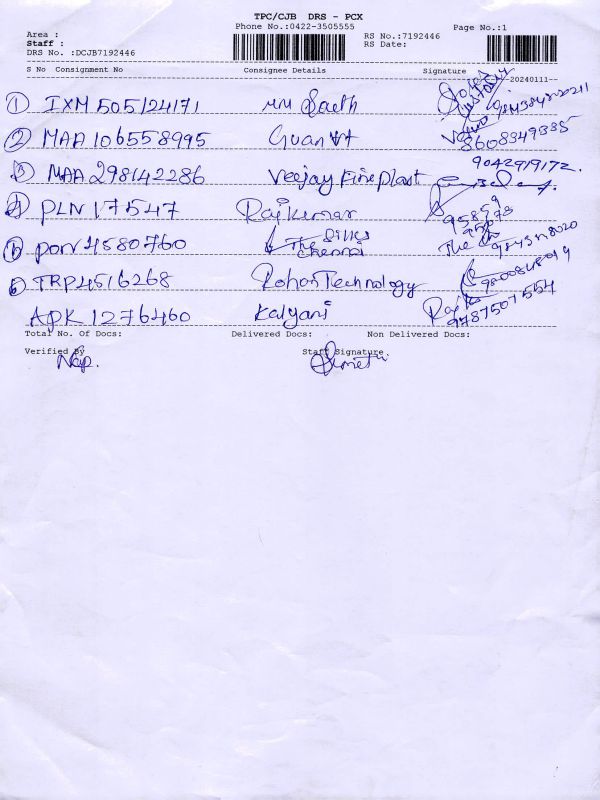 TPC/CJB DRS - PCX
Phone No.:0422-3505555
Page No.:1
Area :
Staff :
DRS No. :DCJB7192446
RS No.:7192446
RS Date:
S No Consignment No Consignee Details Signature
20240111
1 IXM 505124171
2 MAA 106558995 8608349335
3 MAA 298142286 Veejay Fine Plast 9042919172.
4 PLN 17547 Rajkumar
PON 4580760 The Silks Chennai
TRP4516268 Rohan Technology
APK 1276460 Kalyani 9787507554
Total No. Of Docs: Delivered Docs: Non Delivered Docs:
Verified By Staff Signature